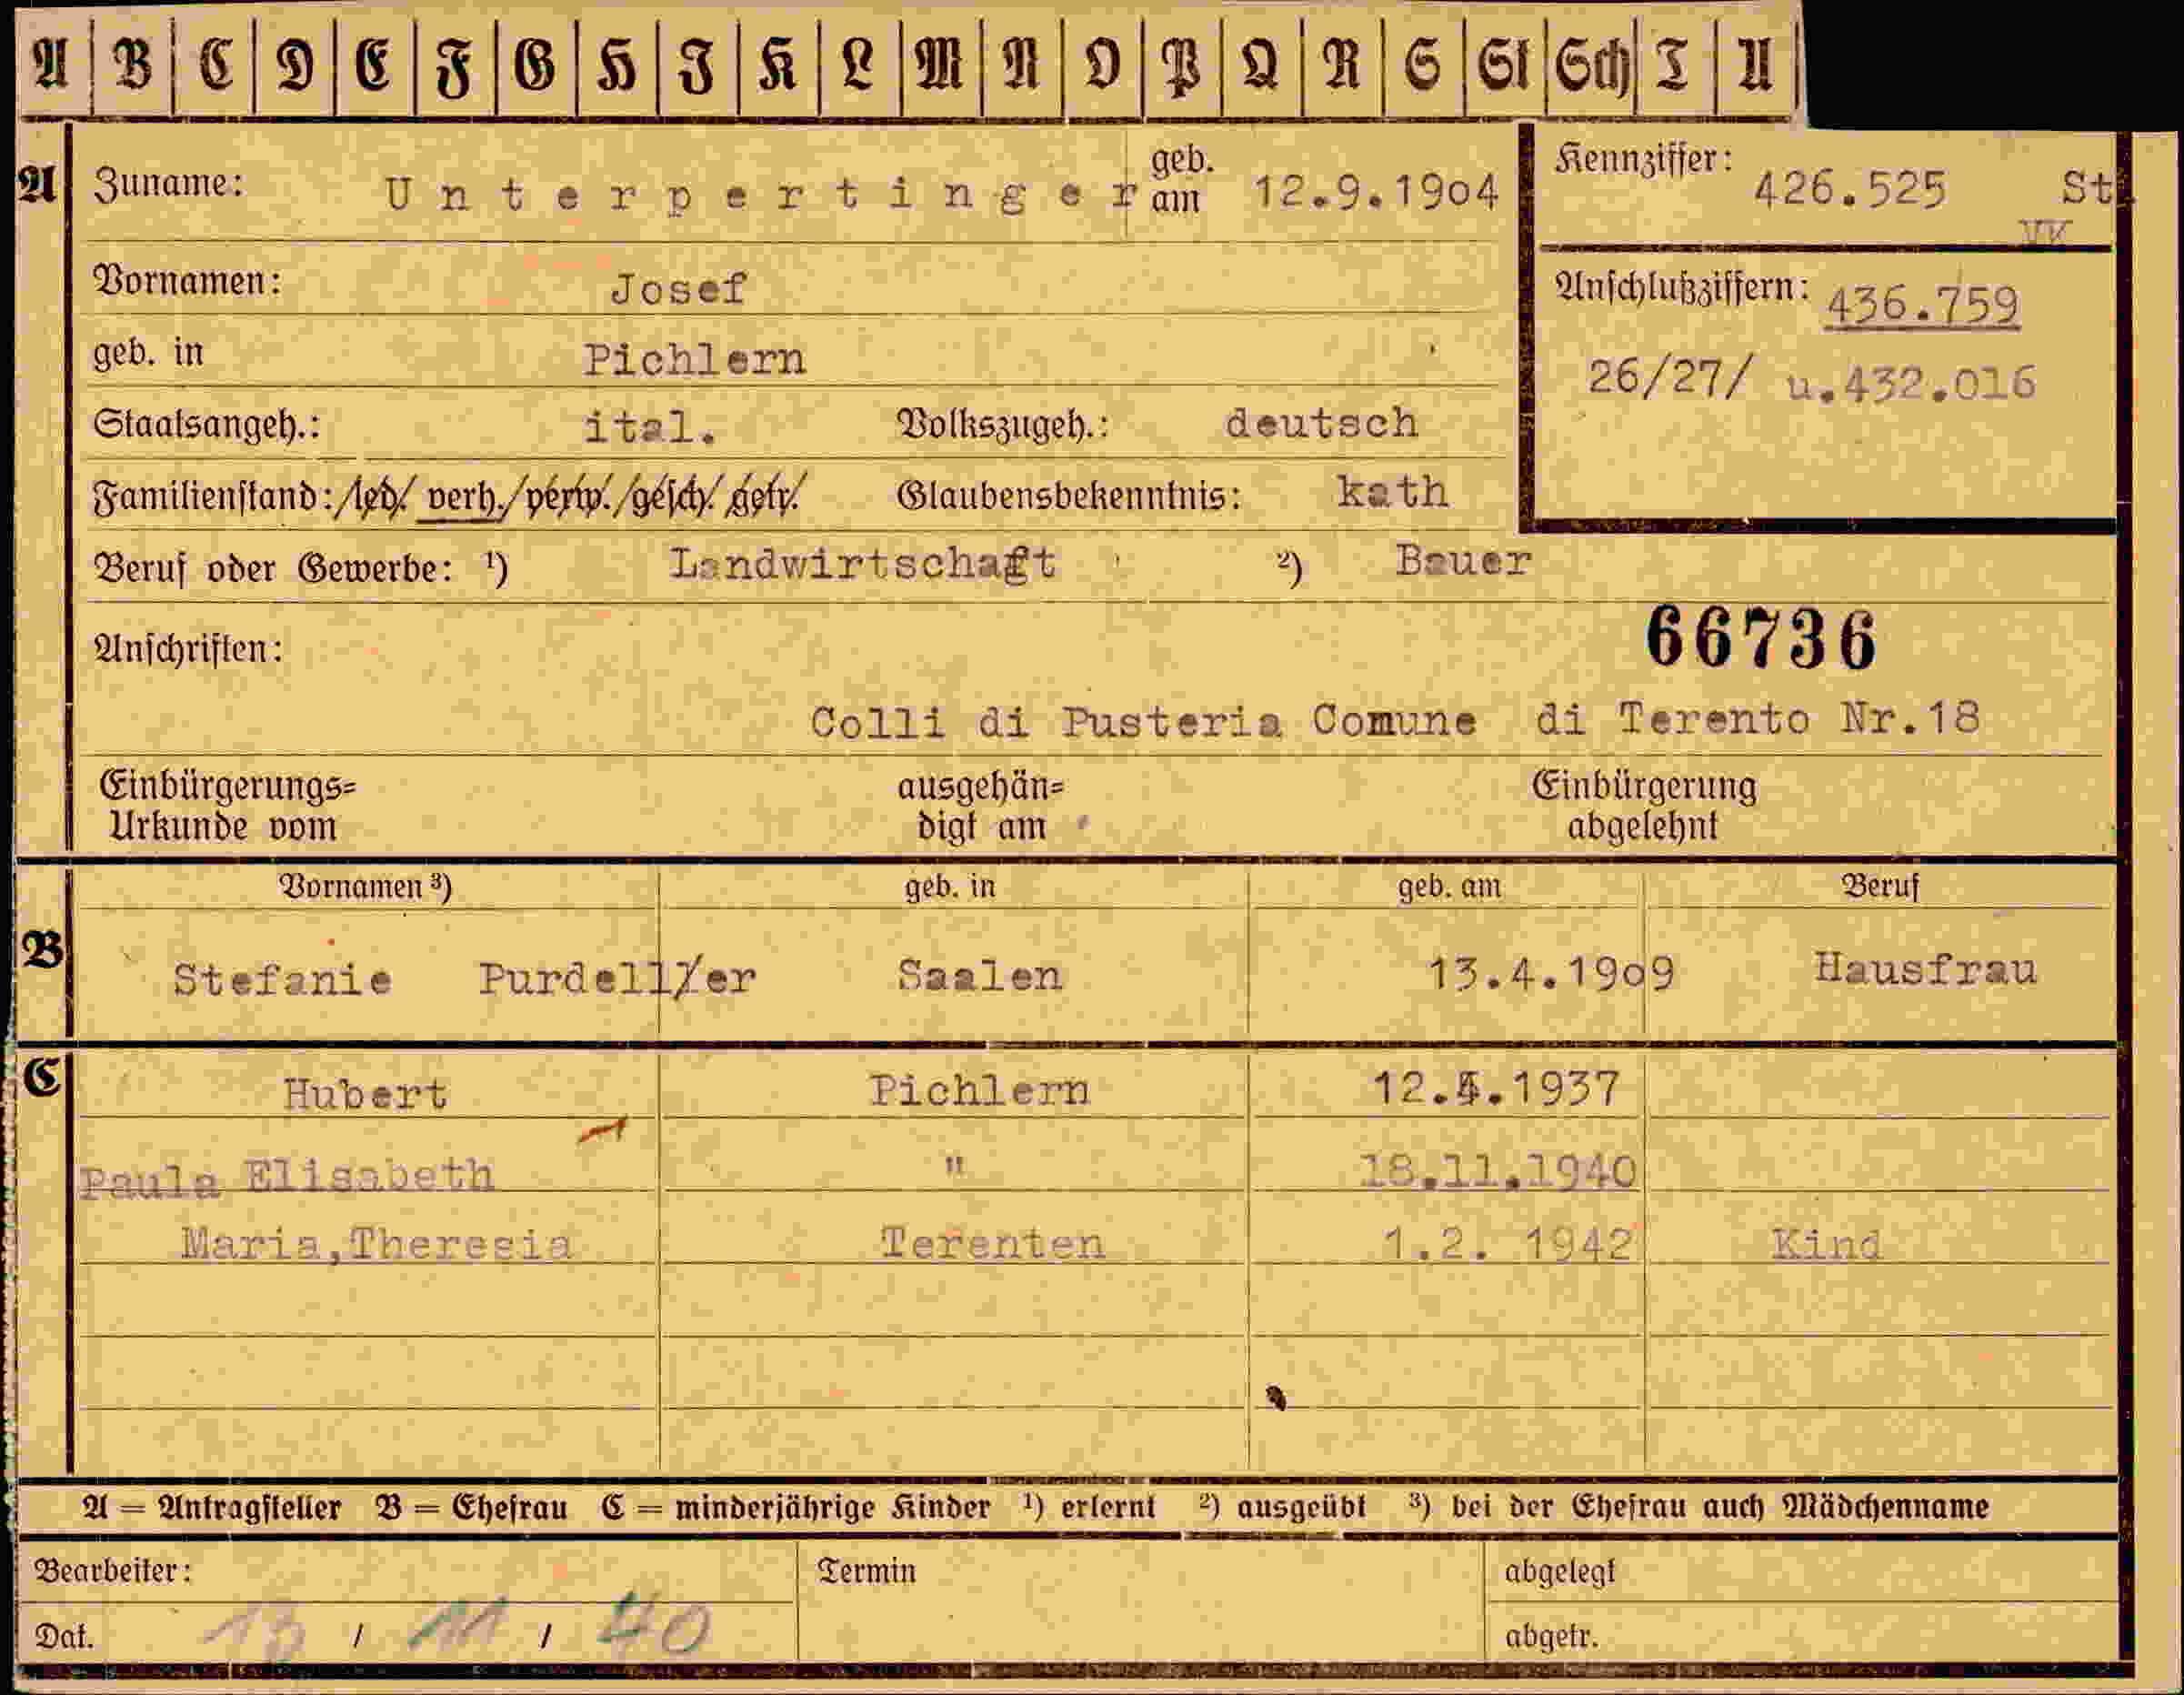 A B C D E F G H I K L M N O P Q R S St Sch T U
A Zuname: Unterpertinger geb. am 12.9.1904 Kennziffer: 426.525 St.
VK
Vornamen: Josef Anschlußziffern: 436.759
geb. in Pichlern 26/27/ u.432.016
Staatsangeh.: ital. Volkszugeh.: deutsch
Familienstand: /led./ verh./verw./gesch./getr. Glaubensbekenntnis: kath
Beruf oder Gewerbe: ¹) Landwirtschaft ²) Bauer
Anschriften: 66736
Colli di Pusteria Comune di Terento Nr.18
Einbürgerungs= ausgehän= Einbürgerung
Urkunde vom digt am abgelehnt
Vornamen ³) geb. in geb. am Beruf
B Stefanie Purdell/er Saalen 13.4.1909 Hausfrau
C Hubert Pichlern 12.4.1937
Paula Elisabeth " 18.11.1940
Maria,Theresia Terenten 1.2. 1942 Kind
A = Antragsteller B = Ehefrau C = minderjährige Kinder ¹) erlernt ²) ausgeübt ³) bei der Ehefrau auch Mädchenname
Bearbeiter: Termin abgelegt
Dat. 13 / 11 / 40 abgetr.